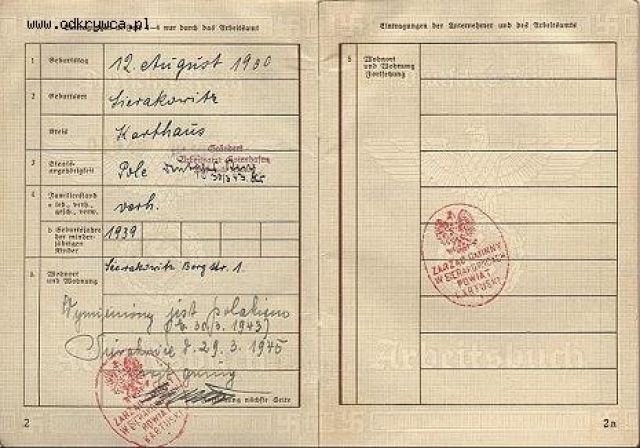 www.odkrywca.pl
nur durch das Arbeitsamt
1 Geburtstag 12. August 1900
2 Geburtsort Sierakowitz
Kreis Karthaus
Geändert
Arbeitsamt Gotenhafen
3 Staats-
angehörigkeit Pole
4 Familienstand
a led., verh.,
gesch., verw. verh.
b Geburtsjahre
der minder-
jährigen
Kinder 1939
5 Wohnort
und Wohnung Sierakowitz Bergstr. 1
Wymieniony jest polakiem
30.3.1943)
Sierakowice d. 29.3.1945
wójt gminy
ZARZĄD GMINY
W SIERAKOWICACH
POWIAT
KARTUSKI
nächste Seite
2
Eintragungen der Unternehmer und des Arbeitsamts
5 Wohnort
und Wohnung
Fortsetzung
ZARZĄD GMINY
W SIERAKOWICACH
POWIAT
KARTUSKI
Arbeitsbuch
2a